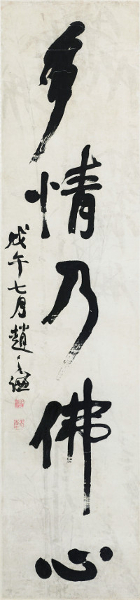 多情乃佛心
戊午七月趙之謙